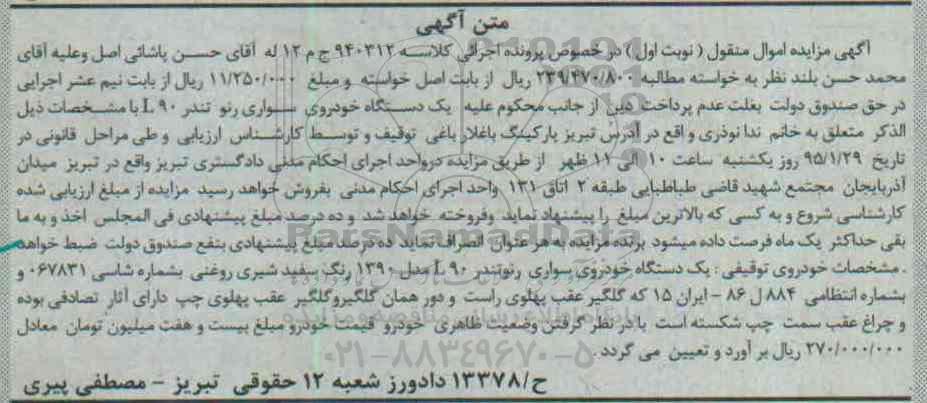 متن آگهی
آگهی مزایده اموال منقول ( نوبت اول ) در خصوص پرونده اجرائی کلاسه ۹۴۰۳۱۲ ج م ۱۲ له آقای حسن پاشائی اصل وعلیه آقای
محمد حسن بلند نظر به خواسته مطالبه ۲۳۹/۴۷۰/۸۰۰ ریال از بابت اصل خواسته و مبلغ ۱۱/۲۵۰/۰۰۰ ریال از بابت نیم عشر اجرایی
در حق صندوق دولت بعلت عدم پرداخت دین از جانب محکوم علیه یک دستگاه خودروی سواری رنو تندر L۹۰ با مشخصات ذیل
الذکر متعلق به خانم ندا نوذری واقع در آدرس تبریز پارکینگ باغلار باغی توقیف و توسط کارشناس ارزیابی و طی مراحل قانونی در
تاریخ ۹۵/۱/۲۹ روز یکشنبه ساعت ۱۰ الی ۱۱ ظهر از طریق مزایده درواحد اجرای احکام مدنی دادگستری تبریز واقع در تبریز میدان
آذربایجان مجتمع شهید قاضی طباطبایی طبقه ۲ اتاق ۱۳۱ واحد اجرای احکام مدنی بفروش خواهد رسید مزایده از مبلغ ارزیابی شده
کارشناسی شروع و به کسی که بالاترین مبلغ را پیشنهاد نماید وفروخته خواهد شد و ده درصد مبلغ پیشنهادی فی المجلس اخذ و به ما
بقی حداکثر یک ماه فرصت داده میشود برنده مزایده به هر عنوان انصراف نماید ده درصد مبلغ پیشنهادی بنفع صندوق دولت ضبط خواهد
. مشخصات خودروی توقیفی : یک دستگاه خودروی سواری رنوتندر L۹۰ مدل ۱۳۹۰ رنگ سفید شیری روغنی بشماره شاسی ۰۶۷۸۳۱ و
بشماره انتظامی ۸۸۴ ل ۸۶ - ایران ۱۵ که گلگیر عقب پهلوی راست و دور همان گلگیروگلگیر عقب پهلوی چپ دارای آثار تصادفی بوده
و چراغ عقب سمت چپ شکسته است با در نظر گرفتن وضعیت ظاهری خودرو قیمت خودرو مبلغ بیست و هفت میلیون تومان معادل
۲۷۰/۰۰۰/۰۰۰ ریال بر آورد و تعیین می گردد .
ParsNamadData
۰۲۱-۸۸۳۴۹۶۷۰-۵
ح/۱۳۳۷۸ دادورز شعبه ۱۲ حقوقی تبریز - مصطفی پیری